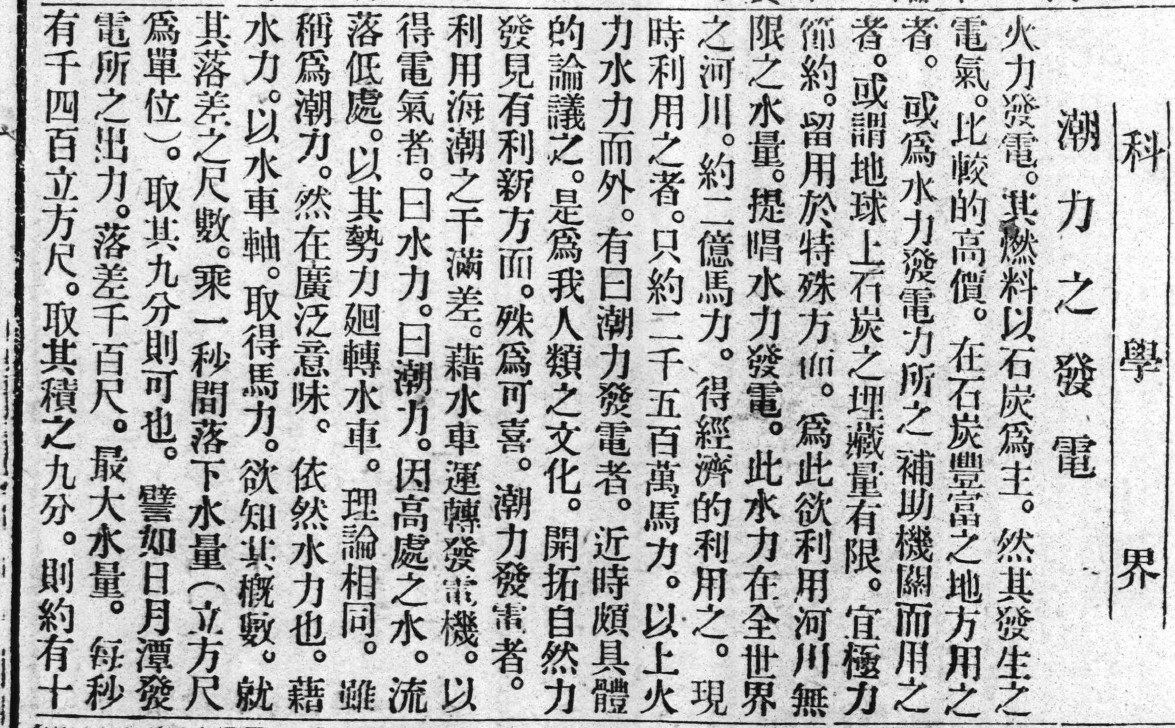 科學界
潮力之發電
火力發電。其燃料以石炭爲主。然其發生之
電氣。比較的高價。在石炭豐富之地方用之
者。或爲水力發電力所之補助機關而用之
者。或謂地球上石炭之埋藏量有限。宜極力
節約。留用於特殊方面。爲此欲利用河川無
限之水量。提唱水力發電。此水力在全世界
之河川。約二億馬力。得經濟的利用之。現
時利用之者。只約二千五百萬馬力。以上火
力水力而外。有曰潮力發電者。近時頗具體
的論議之。是爲我人類之文化。開拓自然力
發見有利新方面。殊爲可喜。潮力發電者。
利用海潮之干滿差。藉水車運轉發電機。以
得電氣者。曰水力。曰潮力。因高處之水。流
落低處。以其勢力廻轉水車。理論相同。雖
稱爲潮力。然在廣泛意味。依然水力也。藉
水力。以水車軸。取得馬力。欲知其概數。就
其落差之尺數。乘一秒間落下水量(立方尺
爲單位)。取其九分則可也。譬如日月潭發
電所之出力。落差千百尺。最大水量。每秒
有千四百立方尺。取其積之九分。則約有十